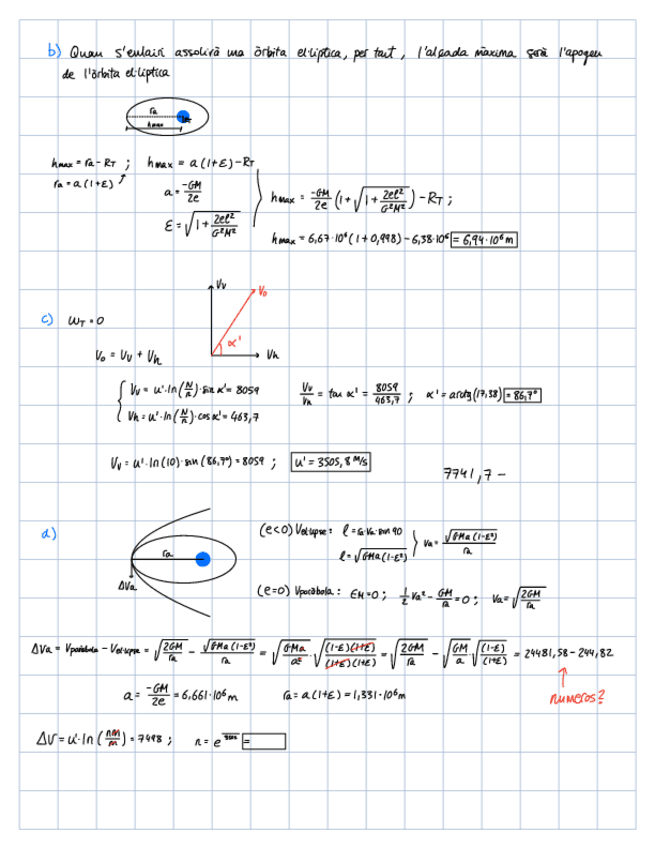 b) Quan s'enlairi assolirà una òrbita el·líptica, per tant, l'alçada màxima serà l'apogeu
de l'òrbita el·líptica
ra
hmax
hmax = ra - RT ; hmax = a(1+ε) - RT
ra = a(1+ε)
a = -GM/2e
ε = √(1 + 2eℓ²/G²M²)
hmax = -GM/2e (1 + √(1 + 2eℓ²/G²M²)) - RT ;
hmax = 6,67·10⁶(1 + 0,998) - 6,38·10⁶ = 6,94·10⁶ m
c) ωT = 0
Vv
Vo
α'
Vh
Vo = Vv + Vh
Vv = u'·ln(N/n)·sin α' = 8059
Vh = u'·ln(N/n)·cos α' = 463,7
Vv/Vh = tan α' = 8059/463,7 ; α' = arctg(17,38) = 86,7°
Vv = u'·ln(10)·sin(86,7°) = 8059 ; u' = 3505,8 m/s
7741,7 -
d)
ra
ΔVa
(e<0) Vel·lipse : ℓ = ra·Va·sin 90
ℓ = √(GMa(1-ε²))
Va = √(GMa(1-ε²))/ra
(e=0) Vparàbola : EM = 0 ; 1/2 Va² - GM/ra = 0 ; Va = √(2GM/ra)
ΔVa = Vparàbola - Vel·lipse = √(2GM/ra) - √(GMa(1-ε²))/ra = √(GMa/a²)·√((1-ε)(1+ε)/(1+ε)(1+ε)) = √(2GM/ra) - √(GM/a)·√((1-ε)/(1+ε)) = 24481,58 - 244,82
a = -GM/2e = 6,661·10⁶ m
ra = a(1+ε) = 1,331·10⁶ m
numeros?
ΔV = u'·ln(nm/m) = 7498 ;
n = e
=